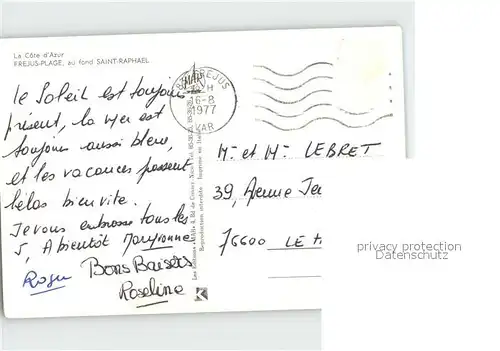 La Côte d'Azur
FREJUS-PLAGE, au fond SAINT-RAPHAEL
le Soleil est toujours
présent, la mer est
toujours aussi bleue,
et les vacances passent
hélas bien vite.
Je vous embrasse tous les
5, A bientôt Maryvonne
Roger
Bons Baisers
Roseline
FREJUS
6-8
1977
VAR
Reproduction interdite
M. et Me LEBRET
39, Avenue Je
76600 LE H
privacy protection
Datenschutz